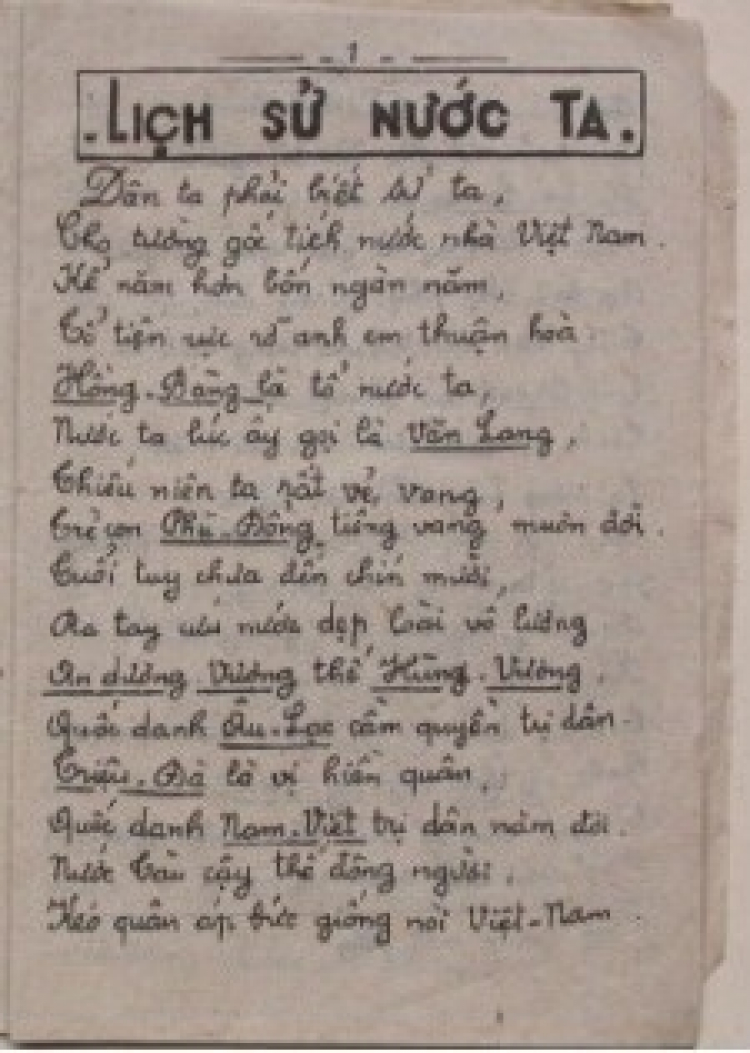 - 1 -
. LỊCH SỬ NƯỚC TA .
Dân ta phải biết sử ta,
Cho tường gốc tích nước nhà Việt Nam.
Kể năm hơn bốn ngàn năm,
Tổ tiên rực rỡ anh em thuận hoà.
Hồng-Bàng là tổ nước ta,
Nước ta lúc ấy gọi là Văn Lang,
Thiếu niên ta rất vẻ vang,
Trẻ con Phù-Đổng tiếng vang muôn đời.
Tuổi tuy chưa đến chín mười,
Ra tay cứu nước dẹp loài vô lương
An dương Vương thế Hùng-Vương,
Quốc danh Âu-Lạc cầm quyền trị dân.
Triệu-Đà là vị hiền quân,
Quốc danh Nam-Việt trị dân năm đời.
Nước Tàu cậy thế đông người,
Kéo quân áp bức giống nòi Việt-Nam.